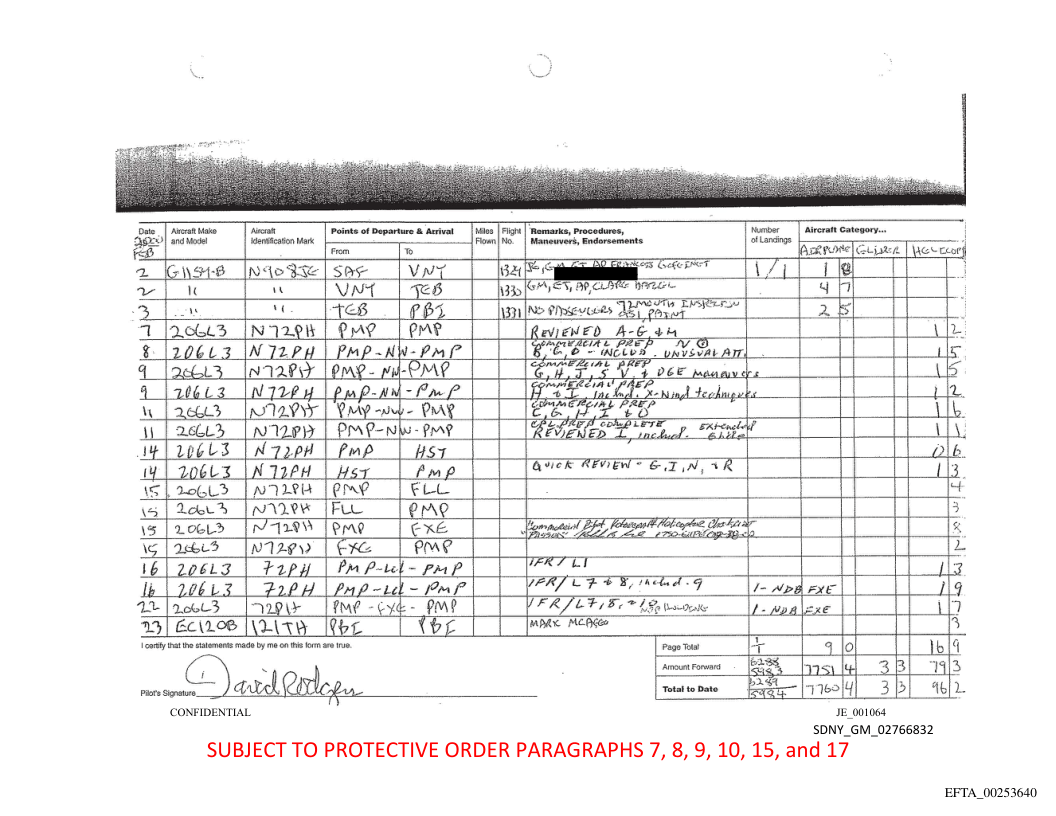 Date Aircraft Make and Model Aircraft Identification Mark Points of Departure & Arrival Miles Flown Flight No. Remarks, Procedures, Maneuvers, Endorsements Number of Landings Aircraft Category...
FEB From To AIRPLANE GLIDER HELICOPT
2 G1159-B N908JE SAF VNY 1329 JE, GM, ET, AP, 1/1 1
2 " " VNY TEB 1330 GM, ET, AP, 4 7
3 " " TEB PBI 1331 NO PASSENGERS 2 5
7 206L3 N72PH PMP PMP REVIEWED A-G, & M 1 2
8 206L3 N72PH PMP-NW-PMP COMMERCIAL PREP B, G, D - INCLUD. UNUSUAL ATT. 1 5
9 206L3 N72PH PMP-NW-PMP COMMERCIAL PREP G, H, I, S V. & OGE maneuvers 1 5
9 206L3 N72PH PMP-NW-PMP COMMERCIAL PREP H & I, Includ. X-Wind techniques 1 2
11 206L3 N72PH PMP-NW-PMP COMMERCIAL PREP C, G, H, I & O 1 6
11 206L3 N72PH PMP-NW-PMP CPL PREP COMPLETE REVIEWED I, includ. Extended 1 1
14 206L3 N72PH PMP HST 0 6
14 206L3 N72PH HST PMP QUICK REVIEW - G, I, N, & R 1 3
15 206L3 N72PH PMP FLL 4
15 206L3 N72PH FLL PMP 3
15 206L3 N72PH PMP FXE Commercial Pilot Rotorcraft Helicopter 8
15 206L3 N72PH FXE PMP 2
16 206L3 72PH PMP-Lcl-PMP IFR/L1 1 3
16 206L3 72PH PMP-Lcl-PMP IFR/L7 & 8, includ. 9 1-NDB FXE 1 9
22 206L3 72PH PMP-FXE-PMP IFR/L7, 8, HOLDING 1-NDB FXE 1 7
23 EC120B 121TH PBI PBI MARK 3
I certify that the statements made by me on this form are true. Page Total 1/1 9 0 16 9
Amount Forward 6288 5983 7751 4 3 3 79 3
Pilot's Signature David Rodgers Total to Date 6289 5984 7760 4 3 3 96 2
CONFIDENTIAL JE_001064
SDNY_GM_02766832
SUBJECT TO PROTECTIVE ORDER PARAGRAPHS 7, 8, 9, 10, 15, and 17
EFTA_00253640